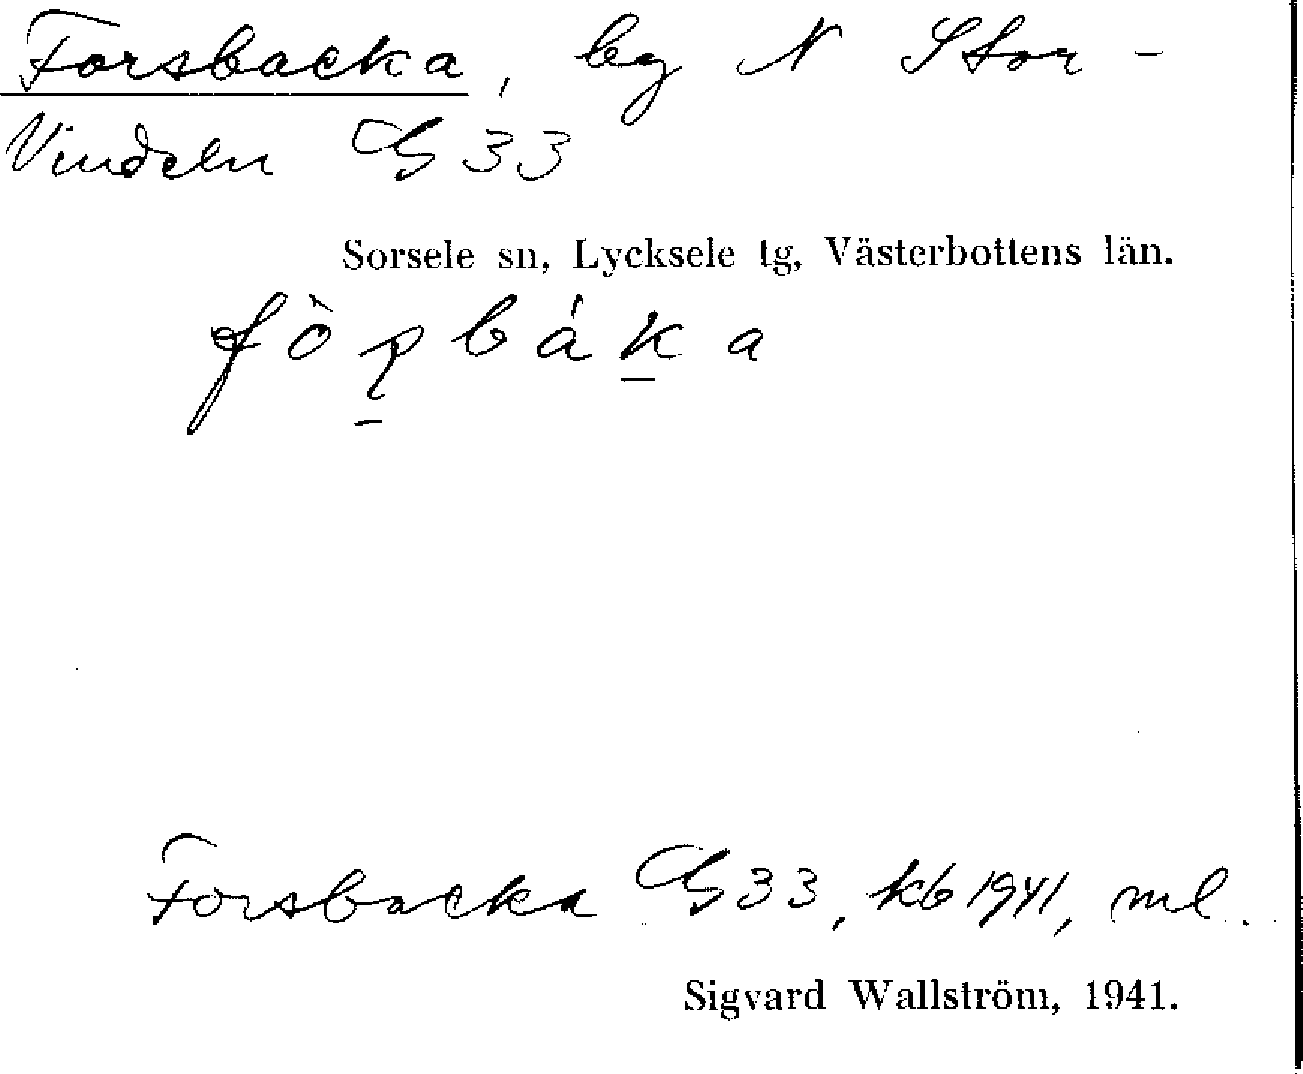 Forsbacka, by N Stor-
Vindeln GS 33
Sorsele sn, Lycksele tg, Västerbottens län.
Forsbacka GS 33, kb 1941, ml.
Sigvard Wallström, 1941.